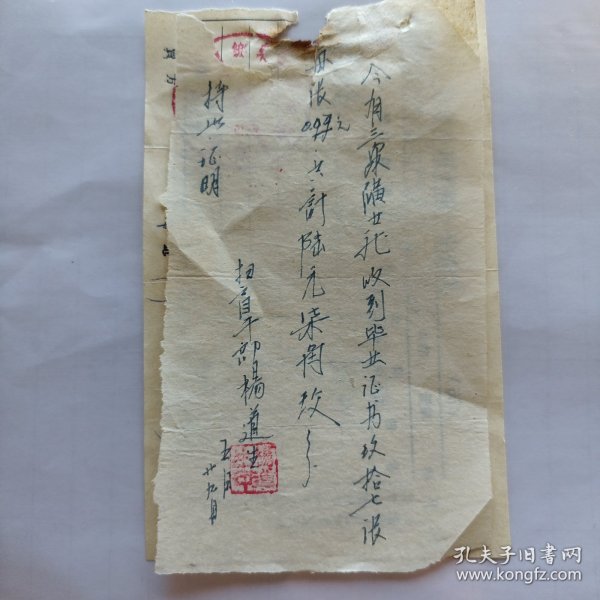 今有三泉矿廿九收到毕业证书玖拾七张
每张0.07元 共计陆元柒角玖分
特此证明
扫盲干部 楊道生
五月廿九日
孔夫子旧书网
www.kongfz.com